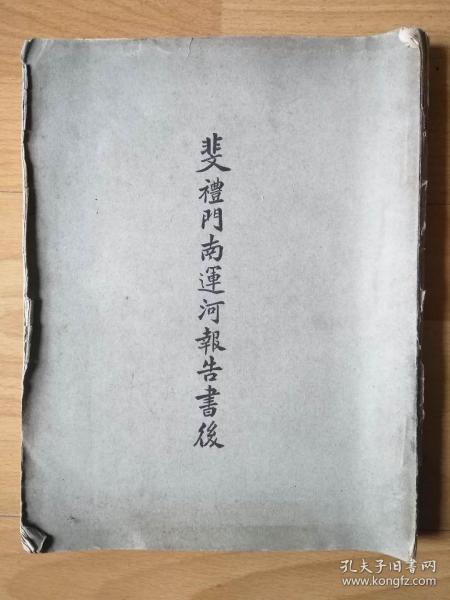 斐禮門南運河報告書後
孔夫子旧书网
www.kongfz.com